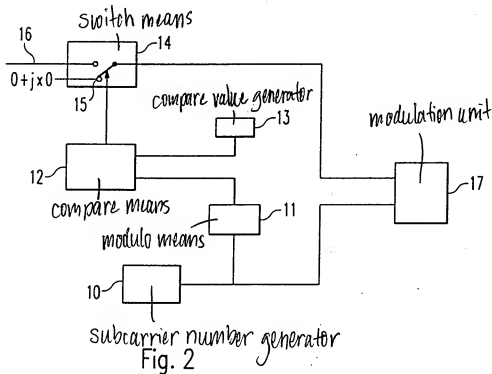 switch means
16
14
0+j×0
15
compare value generator
13
modulation unit
12
17
compare means
11
modulo means
10
subcarrier number generator
Fig. 2